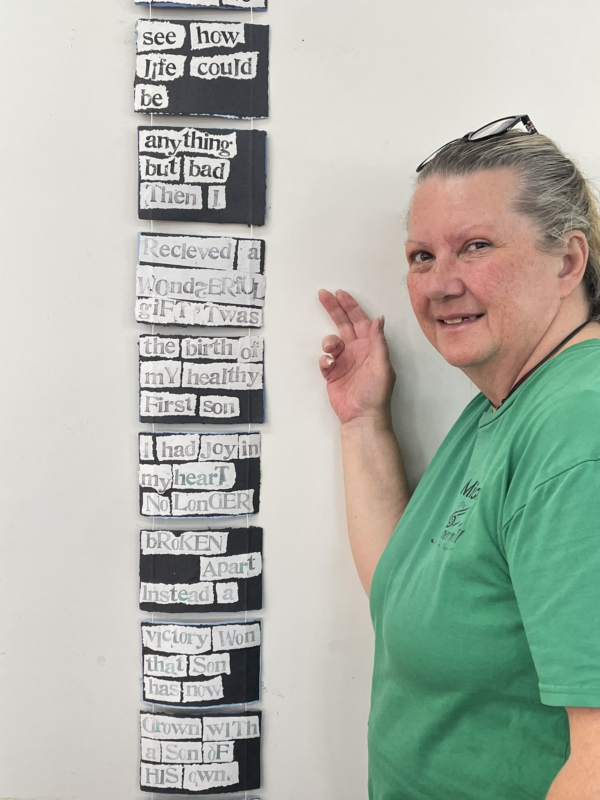 see how
life could
be
anything
but bad
Then I
Recieved a
WondERfUL
giFT Twas
the birth of
mY healthy
First son
I had joy in
my hearT
No LonGER
bRoKEN
Apart
Instead a
victory Won
that Son
has now
Grown wiTh
a Son oF
HIS own.